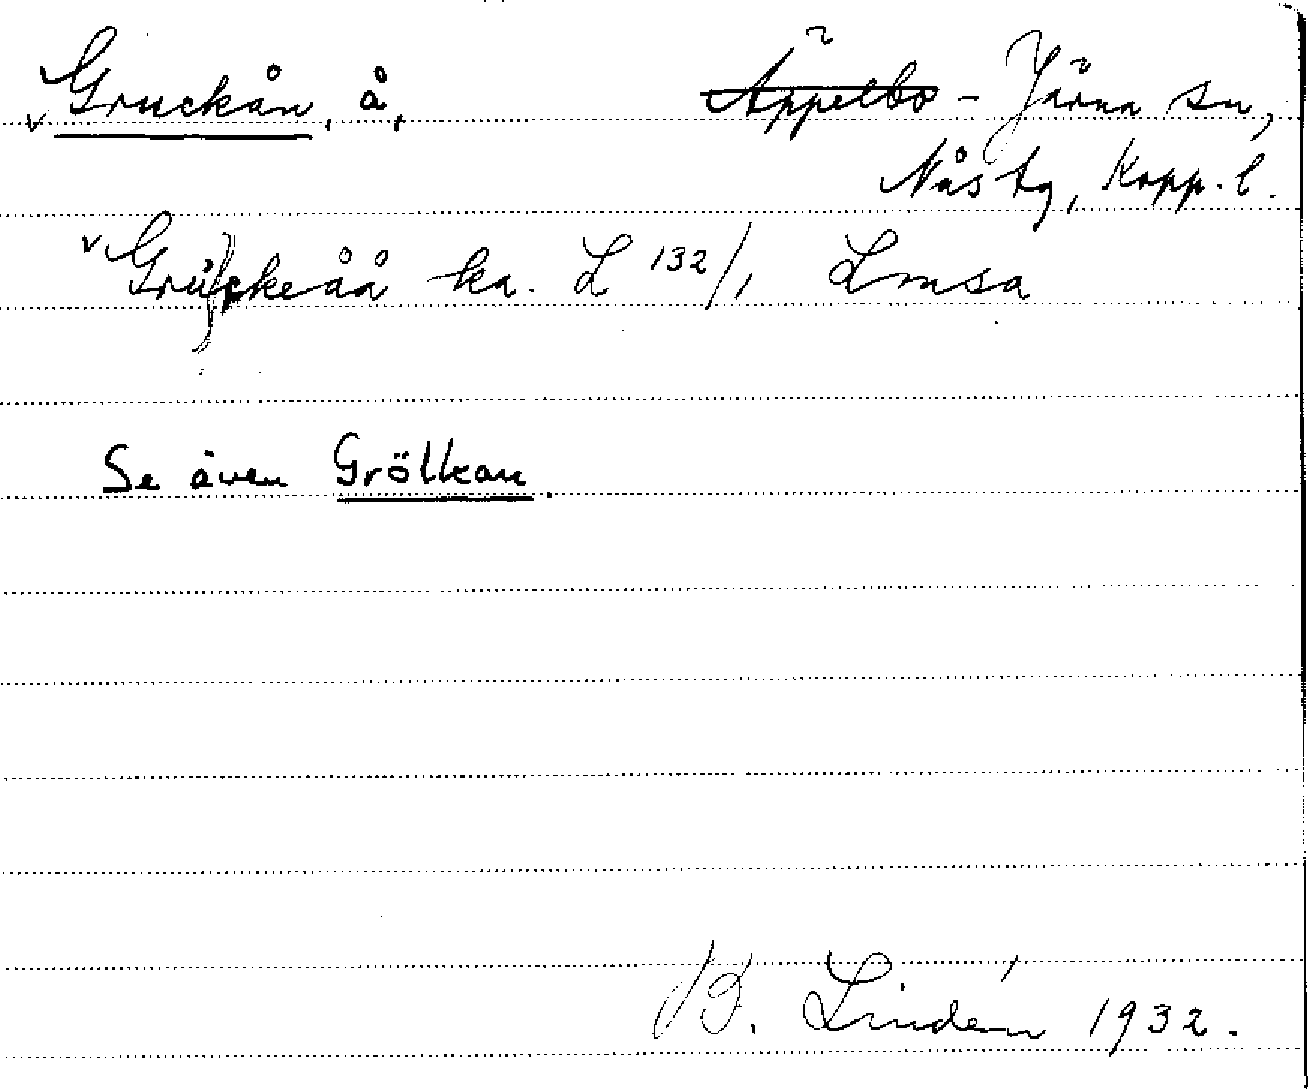 Gruckån, å, Äppelbo - Järna sn,
Nås tg, Kopp. l.
Gruckeåå ka. L 132/1 Lmsa
Se även Grölkan.
B. Lindén 1932.